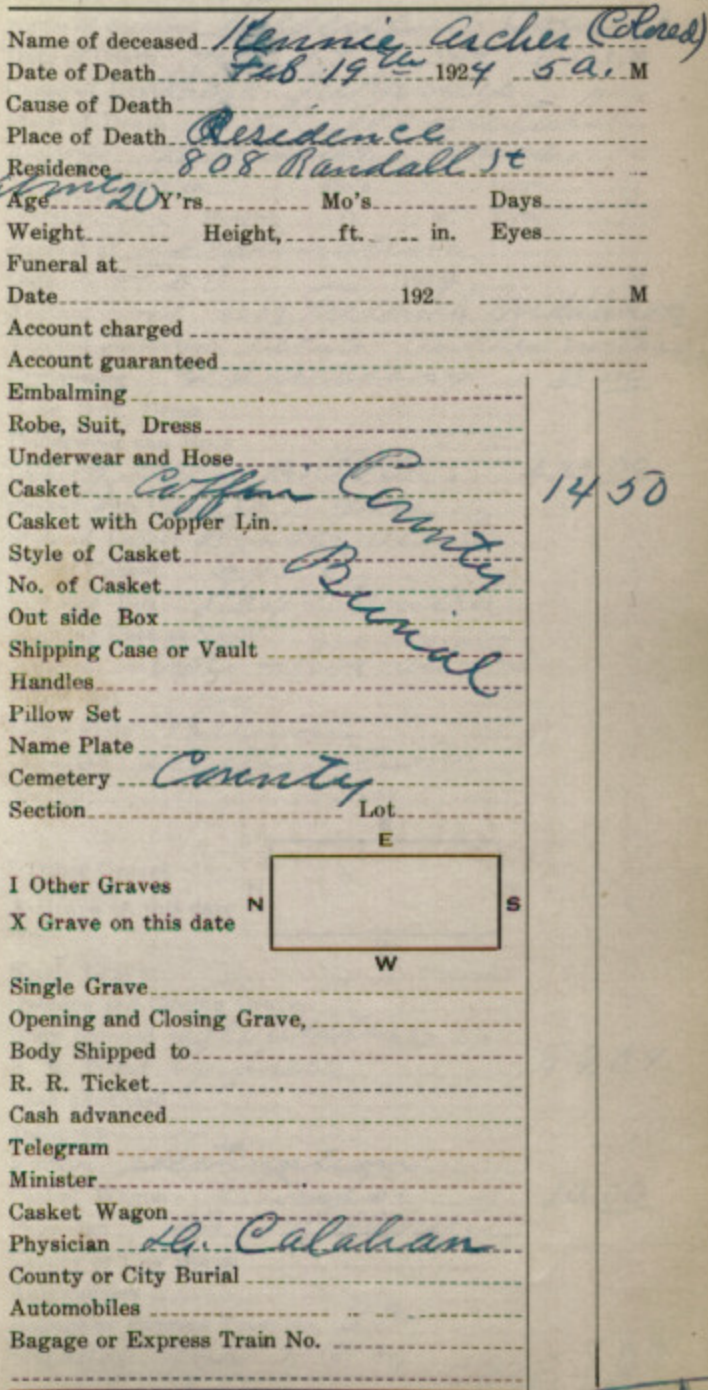 Name of deceased Archer (Colored)
Date of Death Feb 19th 1924 5 a. M
Cause of Death
Place of Death Residence
Residence 808 Randall St
Age 20 Y'rs Mo's Days
Weight Height, ft. in. Eyes
Funeral at
Date 192 M
Account charged
Account guaranteed
Embalming
Robe, Suit, Dress
Underwear and Hose
Casket Coffin County 14 50
Casket with Copper Lin.
Style of Casket Burial
No. of Casket
Out side Box
Shipping Case or Vault
Handles
Pillow Set
Name Plate
Cemetery County
Section Lot
E
I Other Graves
N S
X Grave on this date
W
Single Grave
Opening and Closing Grave,
Body Shipped to
R. R. Ticket
Cash advanced
Telegram
Minister
Casket Wagon
Physician Calahan
County or City Burial
Automobiles
Bagage or Express Train No.